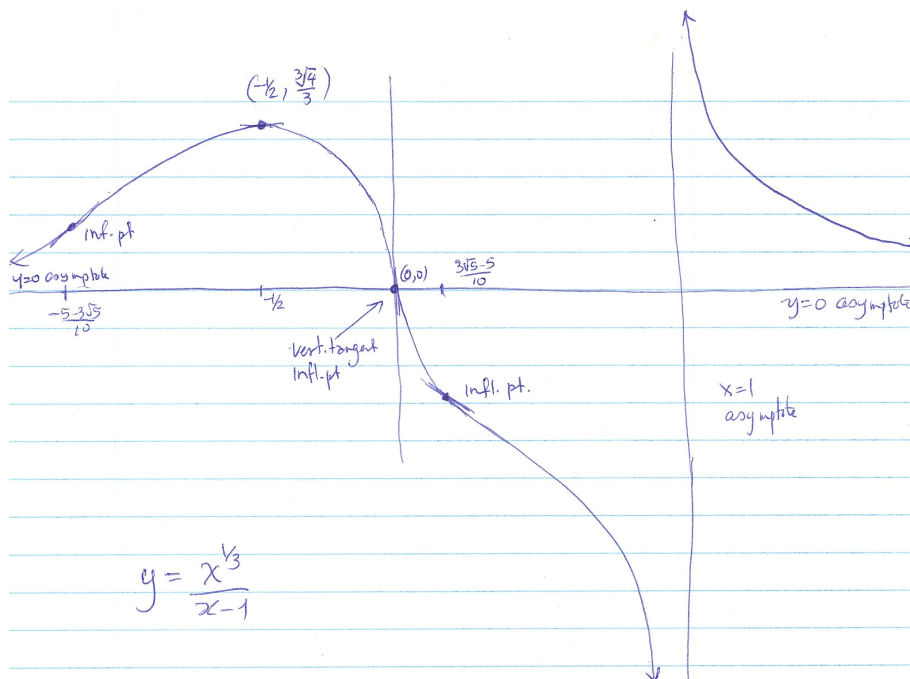 (-1/2, ∛4/3)
inf. pt
y=0 asymptote
(-5-3√5)/10
-1/2
(0,0)
(3√5-5)/10
y=0 asymptote
vert. tangent
infl. pt
infl. pt.
x=1
asymptote
y = x^{1/3}/(x-1)